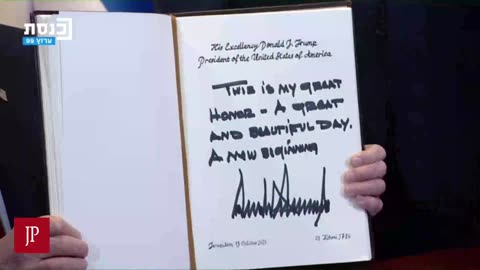 כנסת
ערוץ 99
His Excellency Donald J. Trump
President of the United States of America
THIS IS MY GREAT
HONOR - A GREAT
AND BEAUTIFUL DAY.
A NEW BIGINNING
Jerusalem, 13 October 2025
JP